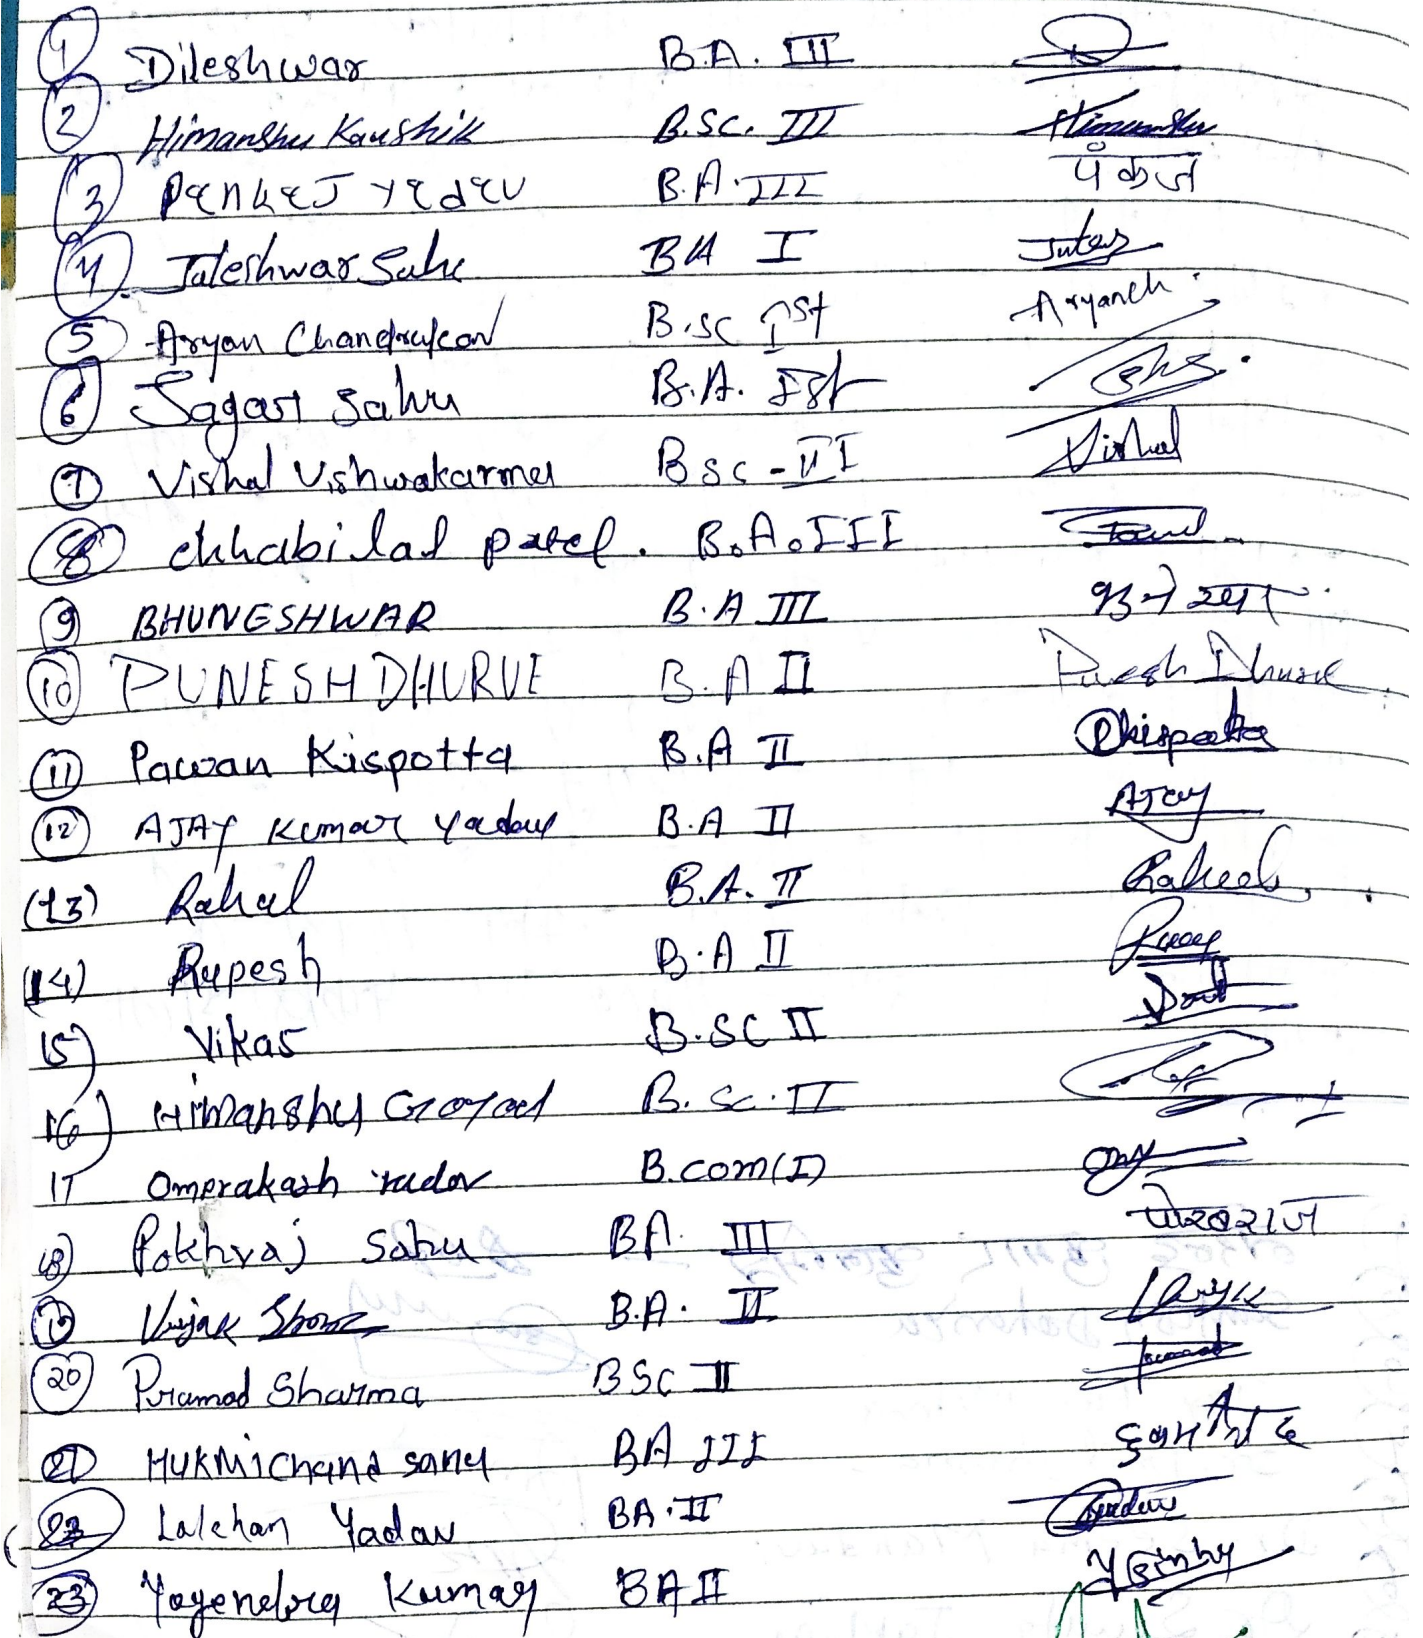 1 Dileshwar B.A. III
2 Himanshu Kaushik B.Sc. III Himanshu
3 Pankaj Yadav B.A. III पंकज
4. Jaleshwar Sahu BA I
5 Aryan Chandrakar B.sc Ist Aryanch.
6 Sagar Sahu B.A. Ist
7 Vishal Vishwakarma Bsc - VI Vishal
8 chhabilal patel. B.A. III
9 BHUNESHWAR B.A III
10 PUNESH DHURVE B.A II Punesh Dhurve
11 Pawan Kispotta B.A II Pkispotta
12 AJAY Kumar Yadav B.A II AJay
(13) Rahul B.A. II
(14) Rupesh B.A II
15) Vikas B.SC II
16) Himanshu Goyal B.Sc. II
17 Omprakash B.com(I)
18) Pokhraj Sahu BA. III पोखराज
19 B.A. II
20 Pramod Sharma BSc II
21 HUKMiChand BA III
Lalchan Yadav BA. II
23 Yogendra Kumar BA II